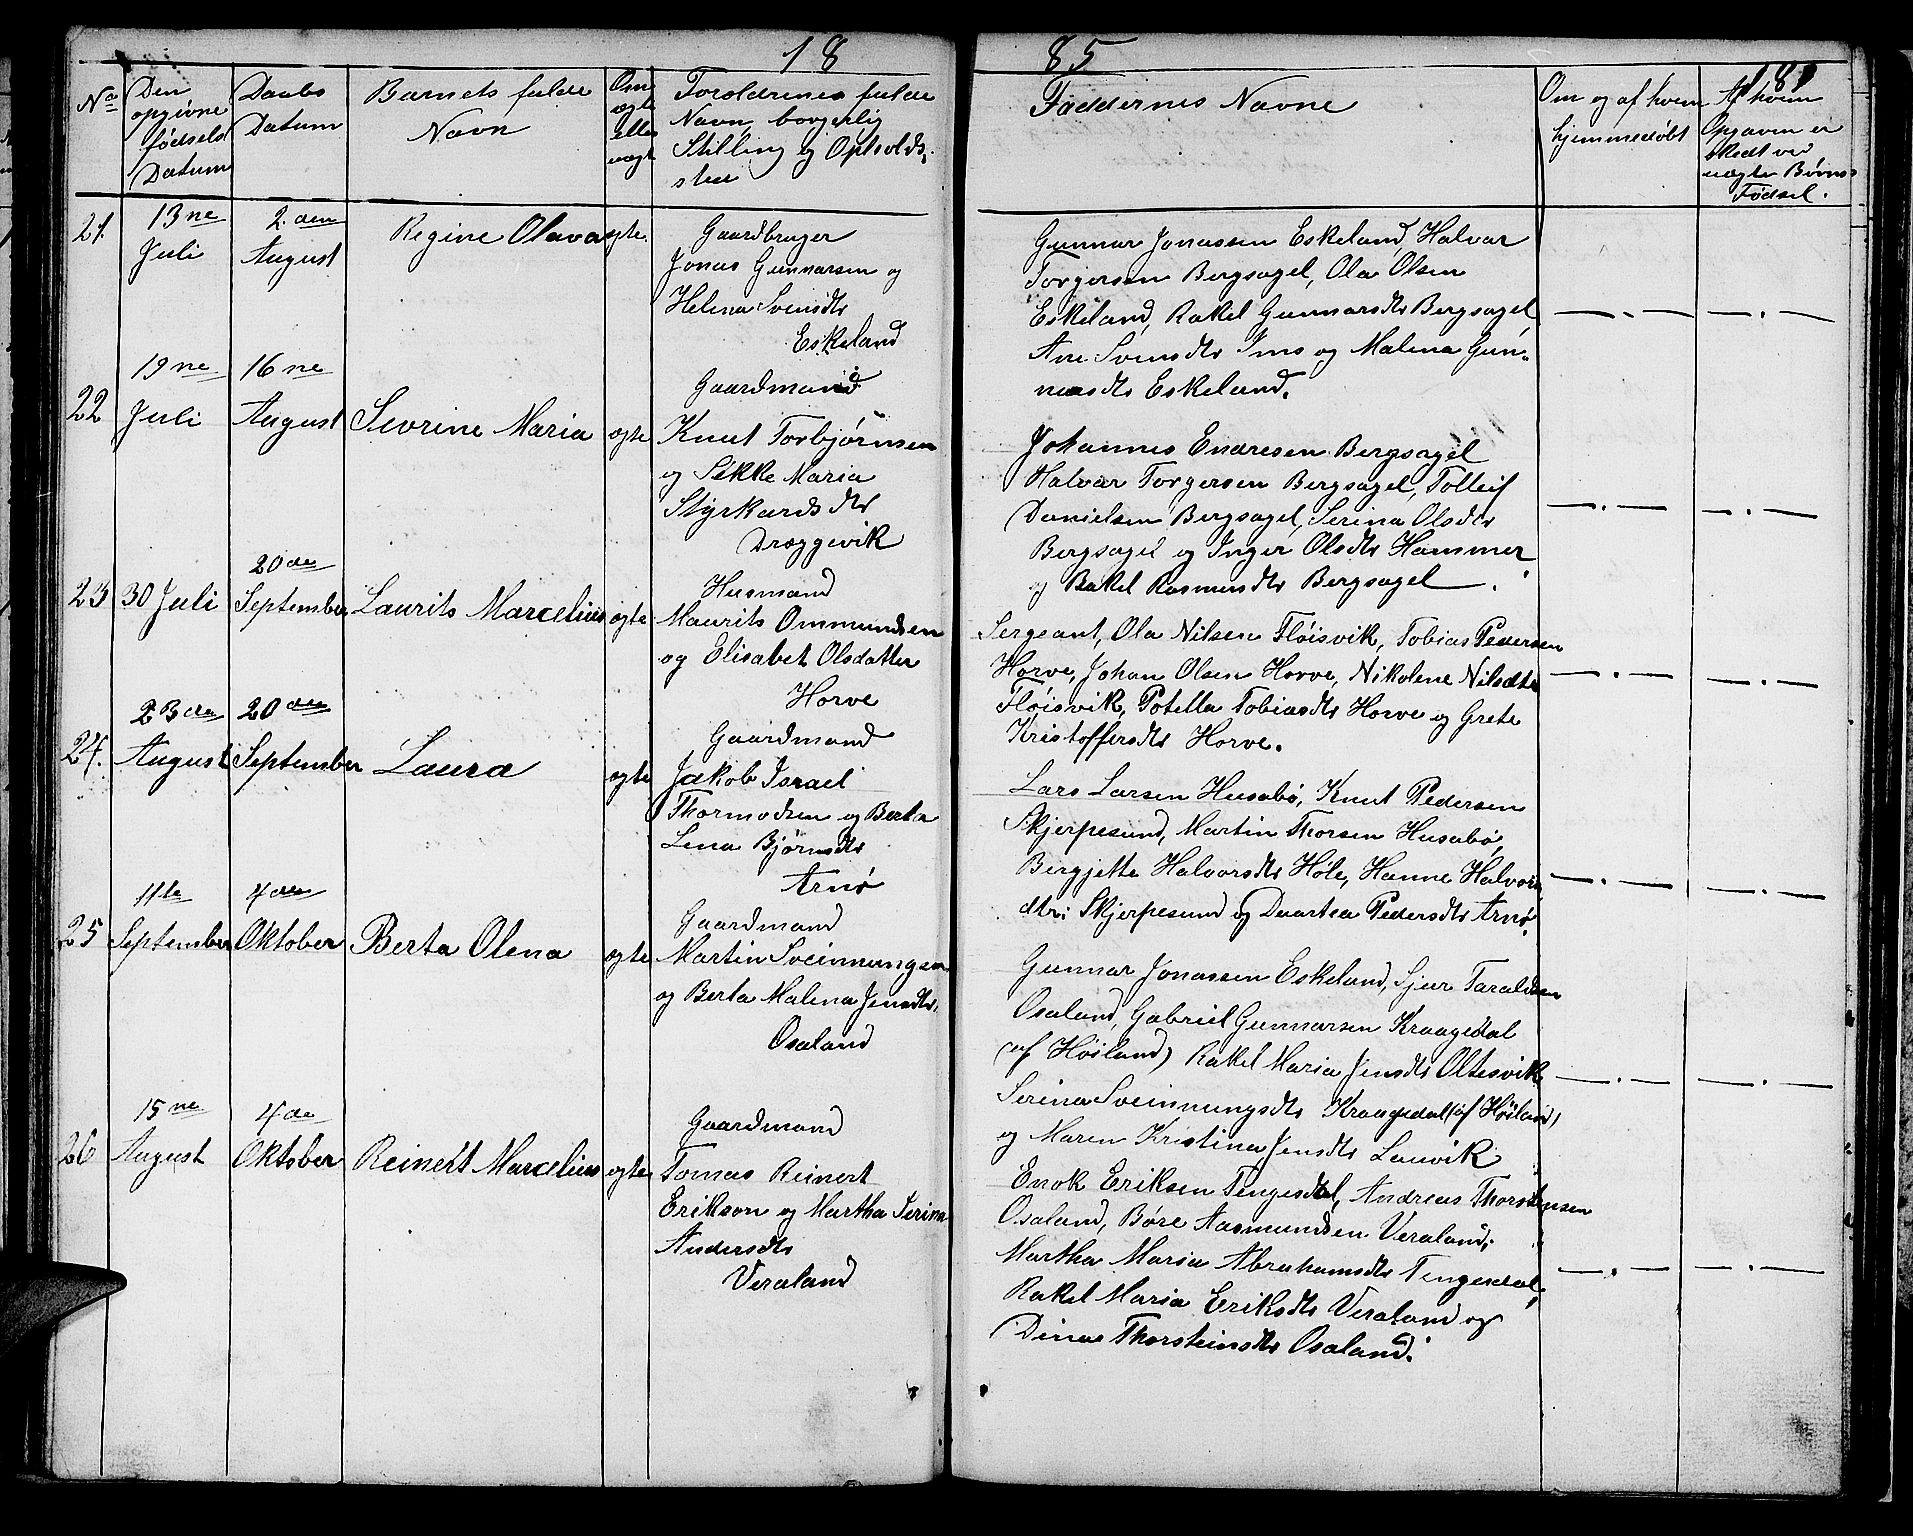 18 85
181
No
Den opgivne fødsels Datum
Daabs Datum
Barnets fulde Navn
Om ægte eller uægte
Forældrenes fulde Navn, borgerlig Stilling og Opholdssted
Faddernes Navne
Om og af hvem hjemmedøbt
Af hvem Opgaven er skedt ved uægte Børns Fødsel.
21.
13ne Juli
2.den August
Regine Olava
ægte.
Gaardbruger
Jonas Gunnarsen og
Helena Svensdtr
Eskeland
Gunnar Jonassen Eskeland, Halvar
Torgersen Bergsagel, Ola Olsen
Eskeland, Rakel Gunnarsdtr Bergsagel
Ane Svensdtr Ims og Malena Gun-
narsdtr Eskeland.
22
19ne Juli
16ne August
Sevrine Maria
ægte
Gaardmand
Knut Torbjørnsen
og Sikke Maria
Styrkardsdtr
Dræggevik
Johannes Endresen Bergsagel
Halvar Torgersen Bergsagel, Tolleif
Danielsen Bergsagel, Serina Olsdtr
Bergsagel og Inger Olsdtr Hammer
og Rakel Rasmusdtr Bergsagel.
23
30 Juli
20de September
Laurits Marcelius
ægte
Husmand
Maurits Ommundsen
og Elisabet Olsdatter
Horve
Sergeant, Ola Nilsen Fløisvik, Tobias Pedersen
Horve, Johan Olsen Horve, Nikolene Nilsdtr
Fløisvik, Potella Tobiasdtr Horve og Grete
Kristoffersdtr Horve.
24.
23de August
20de September
Laura
ægte
Gaardmand
Jakob Israel
Thormodsen og Berta
Lena Bjørnsdtr
Arnø
Lars Larsen Husabø, Knut Pedersen
Skjerpesund, Martin Thorsen Husabø,
Bergjette Halvorsdtr Høle, Hanne Halvors
dtr: Skjerpesund og Daartea Pedersdtr Arnø.
25
11te September
4de Oktober
Berta Olena
ægte
Gaardmand
Martin Sveinungsen
og Berta Malena Jensdtr.
Osaland
Gunnar Jonassen Eskeland, Sjur Taraldsen
Osaland, Gabriel Gunnarsen Kraagedal
(af Høiland) Rakel Maria Jensdtr Oltesvik
Serina Sveinnungsdtr Kraagedal (af Høiland)
og Maren Kristina Jensdtr Lauvik
26
15ne August
4de Oktober
Reinert Marcelius
ægte
Gaardmand
Tomas Reinert
Erikson og Martha Serina
Andersdtr
Veraland
Enok Eriksen Tengesdal, Andreas Thorstensen
Osaland, Børe Aasmundsen Veraland,
Martha Maria Abrahamsdtr Tengesdal,
Rakel Maria Eriksdtr Veraland og
Dina Thorsteinsdtr Osaland.